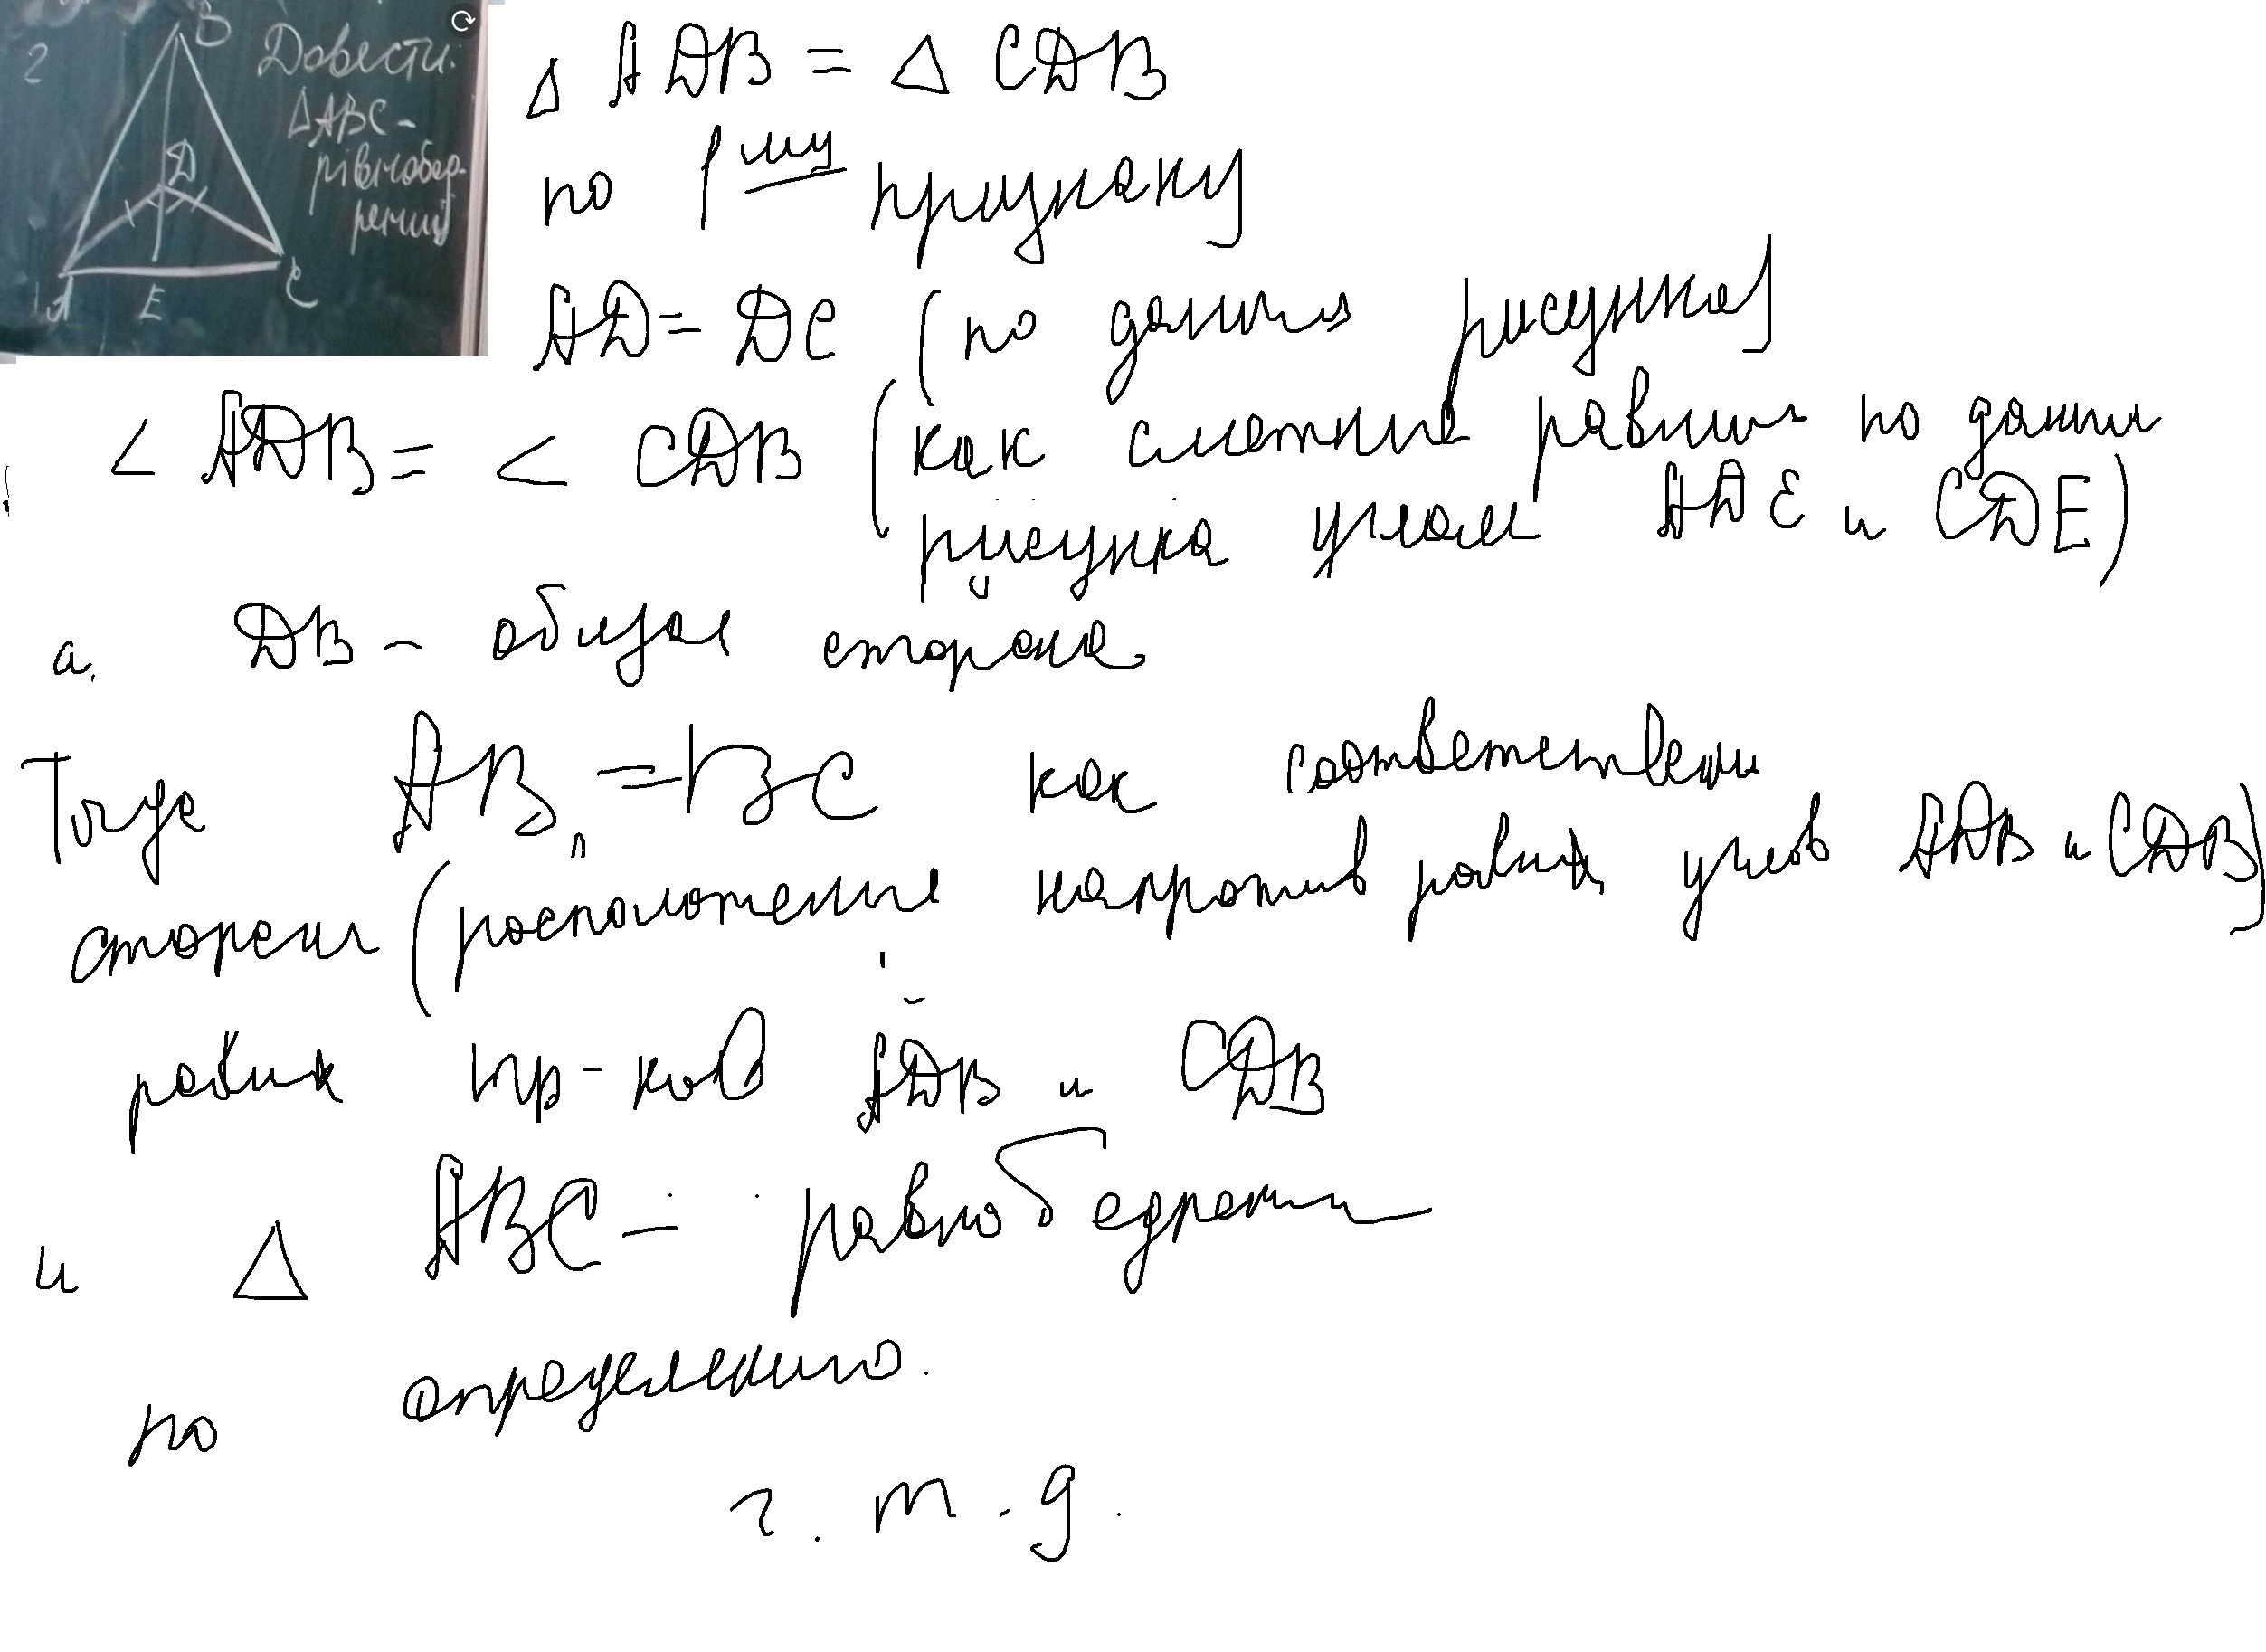 2
B
Довести:
ΔABC -
рівнобед-
рений
D
A
E
C
Δ ADB = Δ CDB
по 1му признаку
AD = DC (по данным рисунка)
< ADB = < CDB (как смежные равным по данным
рисунка углам ADE и CDE)
а. DB - общая сторона
Тогда AB = BC как соответственные
стороны (расположенные напротив равных углов ADB и CDB)
равных тр-ков ADB и CDB
и Δ ABC - равнобедренный
по определению.
ч. т. д.